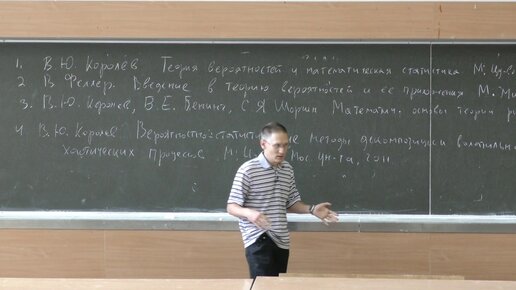 1. В.Ю. Королёв Теория вероятностей и математическая статистика М:
2 В. Феллер. Введение в теорию вероятностей и её приложения М.
3. В.Ю. Королев, В.Е. Бенинг, С.Я Шоргин Математич. основы теории
4. В.Ю. Королев Вероятностно-статистические методы декомпозиции
хаотических процессов М: ун-та, 2011.